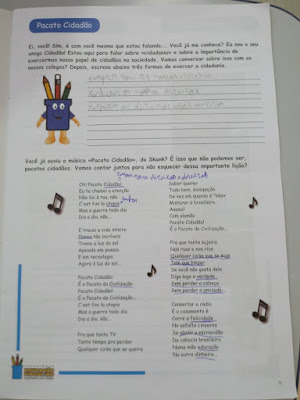 Pacato Cidadão
Ei, você! Sim, é com você mesmo que estou falando... Você já me conhece? Eu sou o seu
amigo Cidadão! Estou aqui para falar sobre «cidadania» e sobre a importância de
exercermos nosso papel de cidadãos na sociedade. Vamos conversar sobre isso com os
nossos colegas? Depois, escreva abaixo três formas de exercer a cidadania.
Você já ouviu a música «Pacato Cidadão», do Skank? É isso que não podemos ser,
pacatos cidadãos. Vamos cantar juntos para não esquecer dessa importante lição?
Oh! Pacato Cidadão!
Eu te chamei a atenção
Não foi à toa, não
C'est fini la utopia
Mas a guerra todo dia
Dia a dia, não...
E tracar a vida inteira
Planos tão incríveis
Tramo a luz do sol
Apoiado em poesia
E em tecnologia
Agora à luz do sol...
Pacato Cidadão!
É o Pacato da Civilização
Pacato Cidadão!
É o Pacato da Civilização...
C'est fini la utopia
Mas a guerra todo dia
Dia a dia, não...
Pra que tanta TV
Tanto tempo pra perder
Qualquer coisa que se queira
Saber querer
Tudo bem, dissipação
De vez em quando é "bão"
Misturar o brasileiro
Com alemão
Pacato Cidadão!
É o Pacato da Civilização...
Pra que tanta sujeira
Nas ruas e nos rios
Qualquer coisa que se suje
Tem que limpar
Se você não gosta dele
Diga logo a verdade
Sem perder a cabeça
Sem perder a amizade...
Consertar o rádio
E o casamento é
Corre a felicidade
No asfalto cinzento
Se abolir a escravidão
Do caboclo brasileiro
Numa mão educação
Na outra dinheiro...